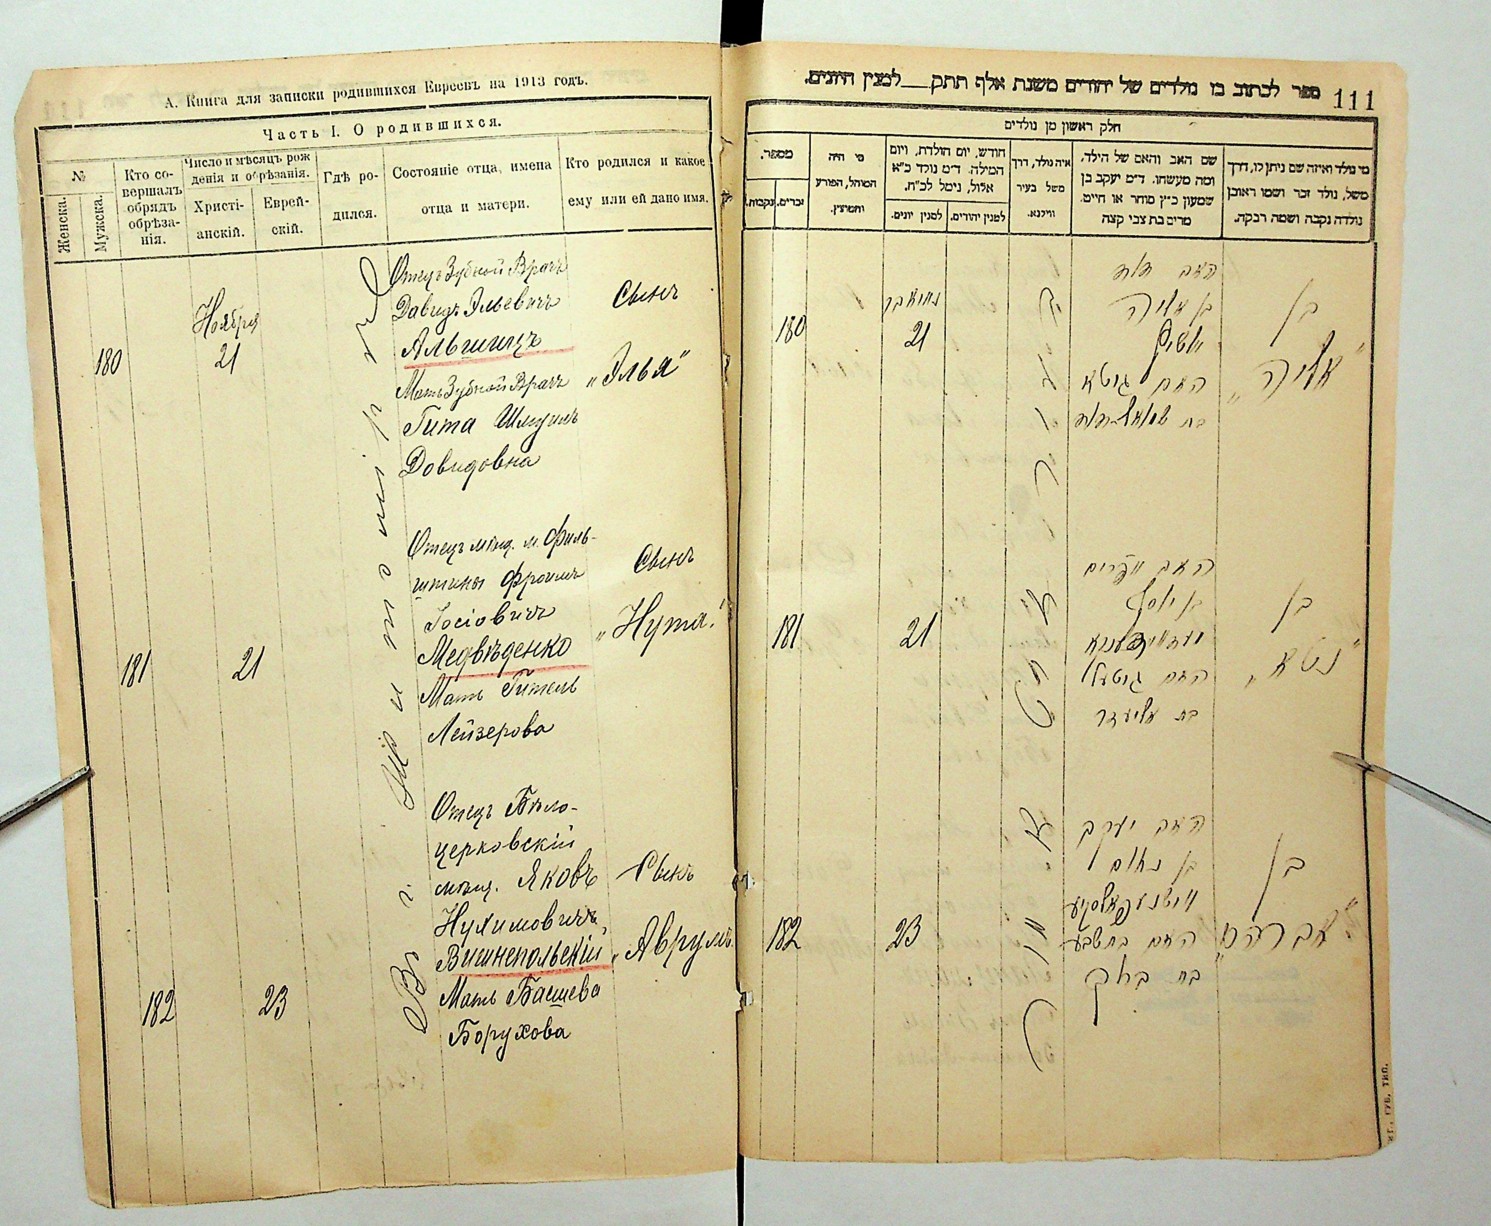 А. Книга для записки родившихся Евреевъ на 1913 годъ.
Часть I. О родившихся.
№
Женска.
Мужска.
Кто со-
вершалъ
обрядъ
обрѣза-
нія.
Число и мѣсяцъ рож
денія и обрѣзанія.
Христі-
анскій.
Еврей-
скій.
Гдѣ ро-
дился.
Состояніе отца, имена
отца и матери.
Кто родился и какое
ему или ей дано имя.
180
Ноября
21
Отецъ Зубной Врачъ
Давидъ Эльевичъ
Альшицъ
Мать Зубной Врачъ
Гита Шмуилъ
Довидовна
Сынъ
„Элья“
181
21
Отецъ мѣщ. м. Филь-
штины Фроимъ
Іосіовичъ
Медвѣденко
Мать Гитель
Лейзерова
Сынъ
„Нута“
182
23
Отецъ Бѣло-
церковскій
мѣщ. Яковъ
Нухимовичъ
Вишнепольскій
Мать Басшева
Борухова
Сынъ
„Аврумъ“
Въ г. Житомірѣ
111
ספר לכתוב בו נולדים של יהודים משנת אלף תתק___למנין היונים.
חלק ראשון מן נולדים
מי נולד ואיזה שם ניתן לו, דרך
משל, נולד זכר ושמו ראובן
נולדה נקבה ושמה רבקה.
שם האב והאם של הילד,
ומה מעשהו. ד״מ יעקב בן
שמעון כ״ץ סוחר או חייט.
מרים בת צבי קצה
איה נולד, דרך
משל בעיר
ווילנא.
חודש, יום הולדת, ויום
המילה. ד״מ נולד כ״א
אלול, נימל לכ״ח.
למנין יהודים.
למנין יונים.
מי היה
המוהל, הפורע
והמוצץ.
מספר.
זכרים.
נקבות.
בן
„אליה“
האב דוד
בן אליה
אלשיץ
האם גיטא
בת שמואל-דוד
נאיאבר
21
180
בן
„נטא“
האב אפרים
בן יוסף
מעדוועדענקא
האם גיטעל
בת אליעזר
21
181
בן
„אברהם“
האב יעקב
בן נחום
ווישנעפאלסקיע
האם בתשבע
בת ברוך
23
182